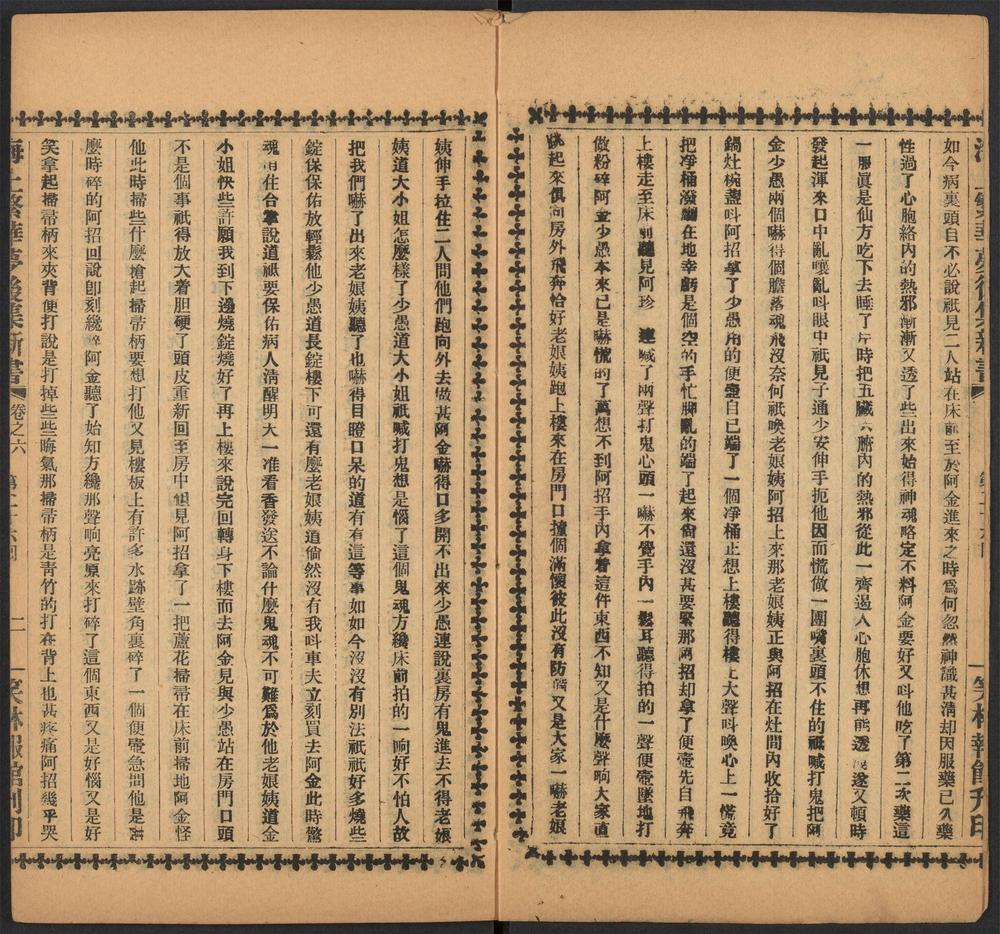 如今病裏頭自不必說祇見二人站在床前至於阿金進來之時爲何忽然神識甚淸却因服藥已久藥
性過了心胞絡內的熱邪漸漸又透了些出來始得神魂略定不料阿金要好又叫他吃了第二次藥這
一服眞是仙方吃下去睡了片時把五臟六腑內的熱邪從此一齊遏入心胞休想再能透 遂又頓時
發起渾來口中亂嚷亂叫眼中祇見子通少安伸手扼他因而慌做一團嘴裏頭不住的祇喊打鬼把阿
金少愚兩個嚇得個膽落魂飛沒奈何祇喚老娘姨阿招上來那老娘姨正與阿招在灶間內收拾好了
鍋灶碗盞叫阿招拿了少愚用的便壺自已端了一個凈桶正想上樓聽得樓上大聲叫喚心上一慌竟
把凈桶潑翻在地幸虧是個空的手忙脚亂的端了起來尙還沒甚要緊那阿招却拿了便壺先自飛奔
上樓走至床前聽見阿珍 連喊了兩聲打鬼心頭一嚇不覺手內一鬆耳聽得拍的一聲便壺墜地打
做粉碎阿金少愚本來已是嚇慌的了萬想不到阿招手內拿着這件東西不知又是什麽聲响大家直
跳起來俱向房外飛奔恰好老娘姨跑上樓來在房門口撞個滿懷彼此沒有防備又是大家一嚇老娘
姨伸手拉住二人問他們跑向外去做甚阿金嚇得口多開不出來少愚連說裏房有鬼進去不得老娘
姨道大小姐怎麽樣了少愚道大小姐祇喊打鬼想是惱了這個鬼魂方纔床前拍的一响好不怕人故
把我們嚇了出來老娘姨聽了也嚇得目瞪口呆的道有有這等事如如今沒沒有別法祇祇好多燒些
錠保保佑放輕鬆他少愚道長錠樓下可還有麽老娘姨道倘然沒有我叫車夫立刻買去阿金此時驚
魂 住合掌說道祇要保佑病人淸醒明天一准看香發送不論什麽鬼魂不可難爲於他老娘姨道金
小姐快些許願我到下邊燒錠燒好了再上樓來說完回轉身下樓而去阿金見與少愚站在房門口頭
不是個事祇得放大着胆硬了頭皮重新回至房中但見阿招拿了一把蘆花掃帚在床前掃地阿金怪
他此時掃些什麽搶起掃帚柄要想打他又見樓板上有許多水跡壁角裏碎了一個便壺急問他是
麽時碎的阿招回說卽刻纔碎阿金聽了始知方纔那聲响亮原來打碎了這個東西又是好惱又是好
笑拿起掃帚柄來夾背便打說是打掉些些晦氣那掃帚柄是靑竹的打在背上也甚疼痛阿招幾乎哭
海上繁華夢後集新書 卷之六 二 笑林報館刊印